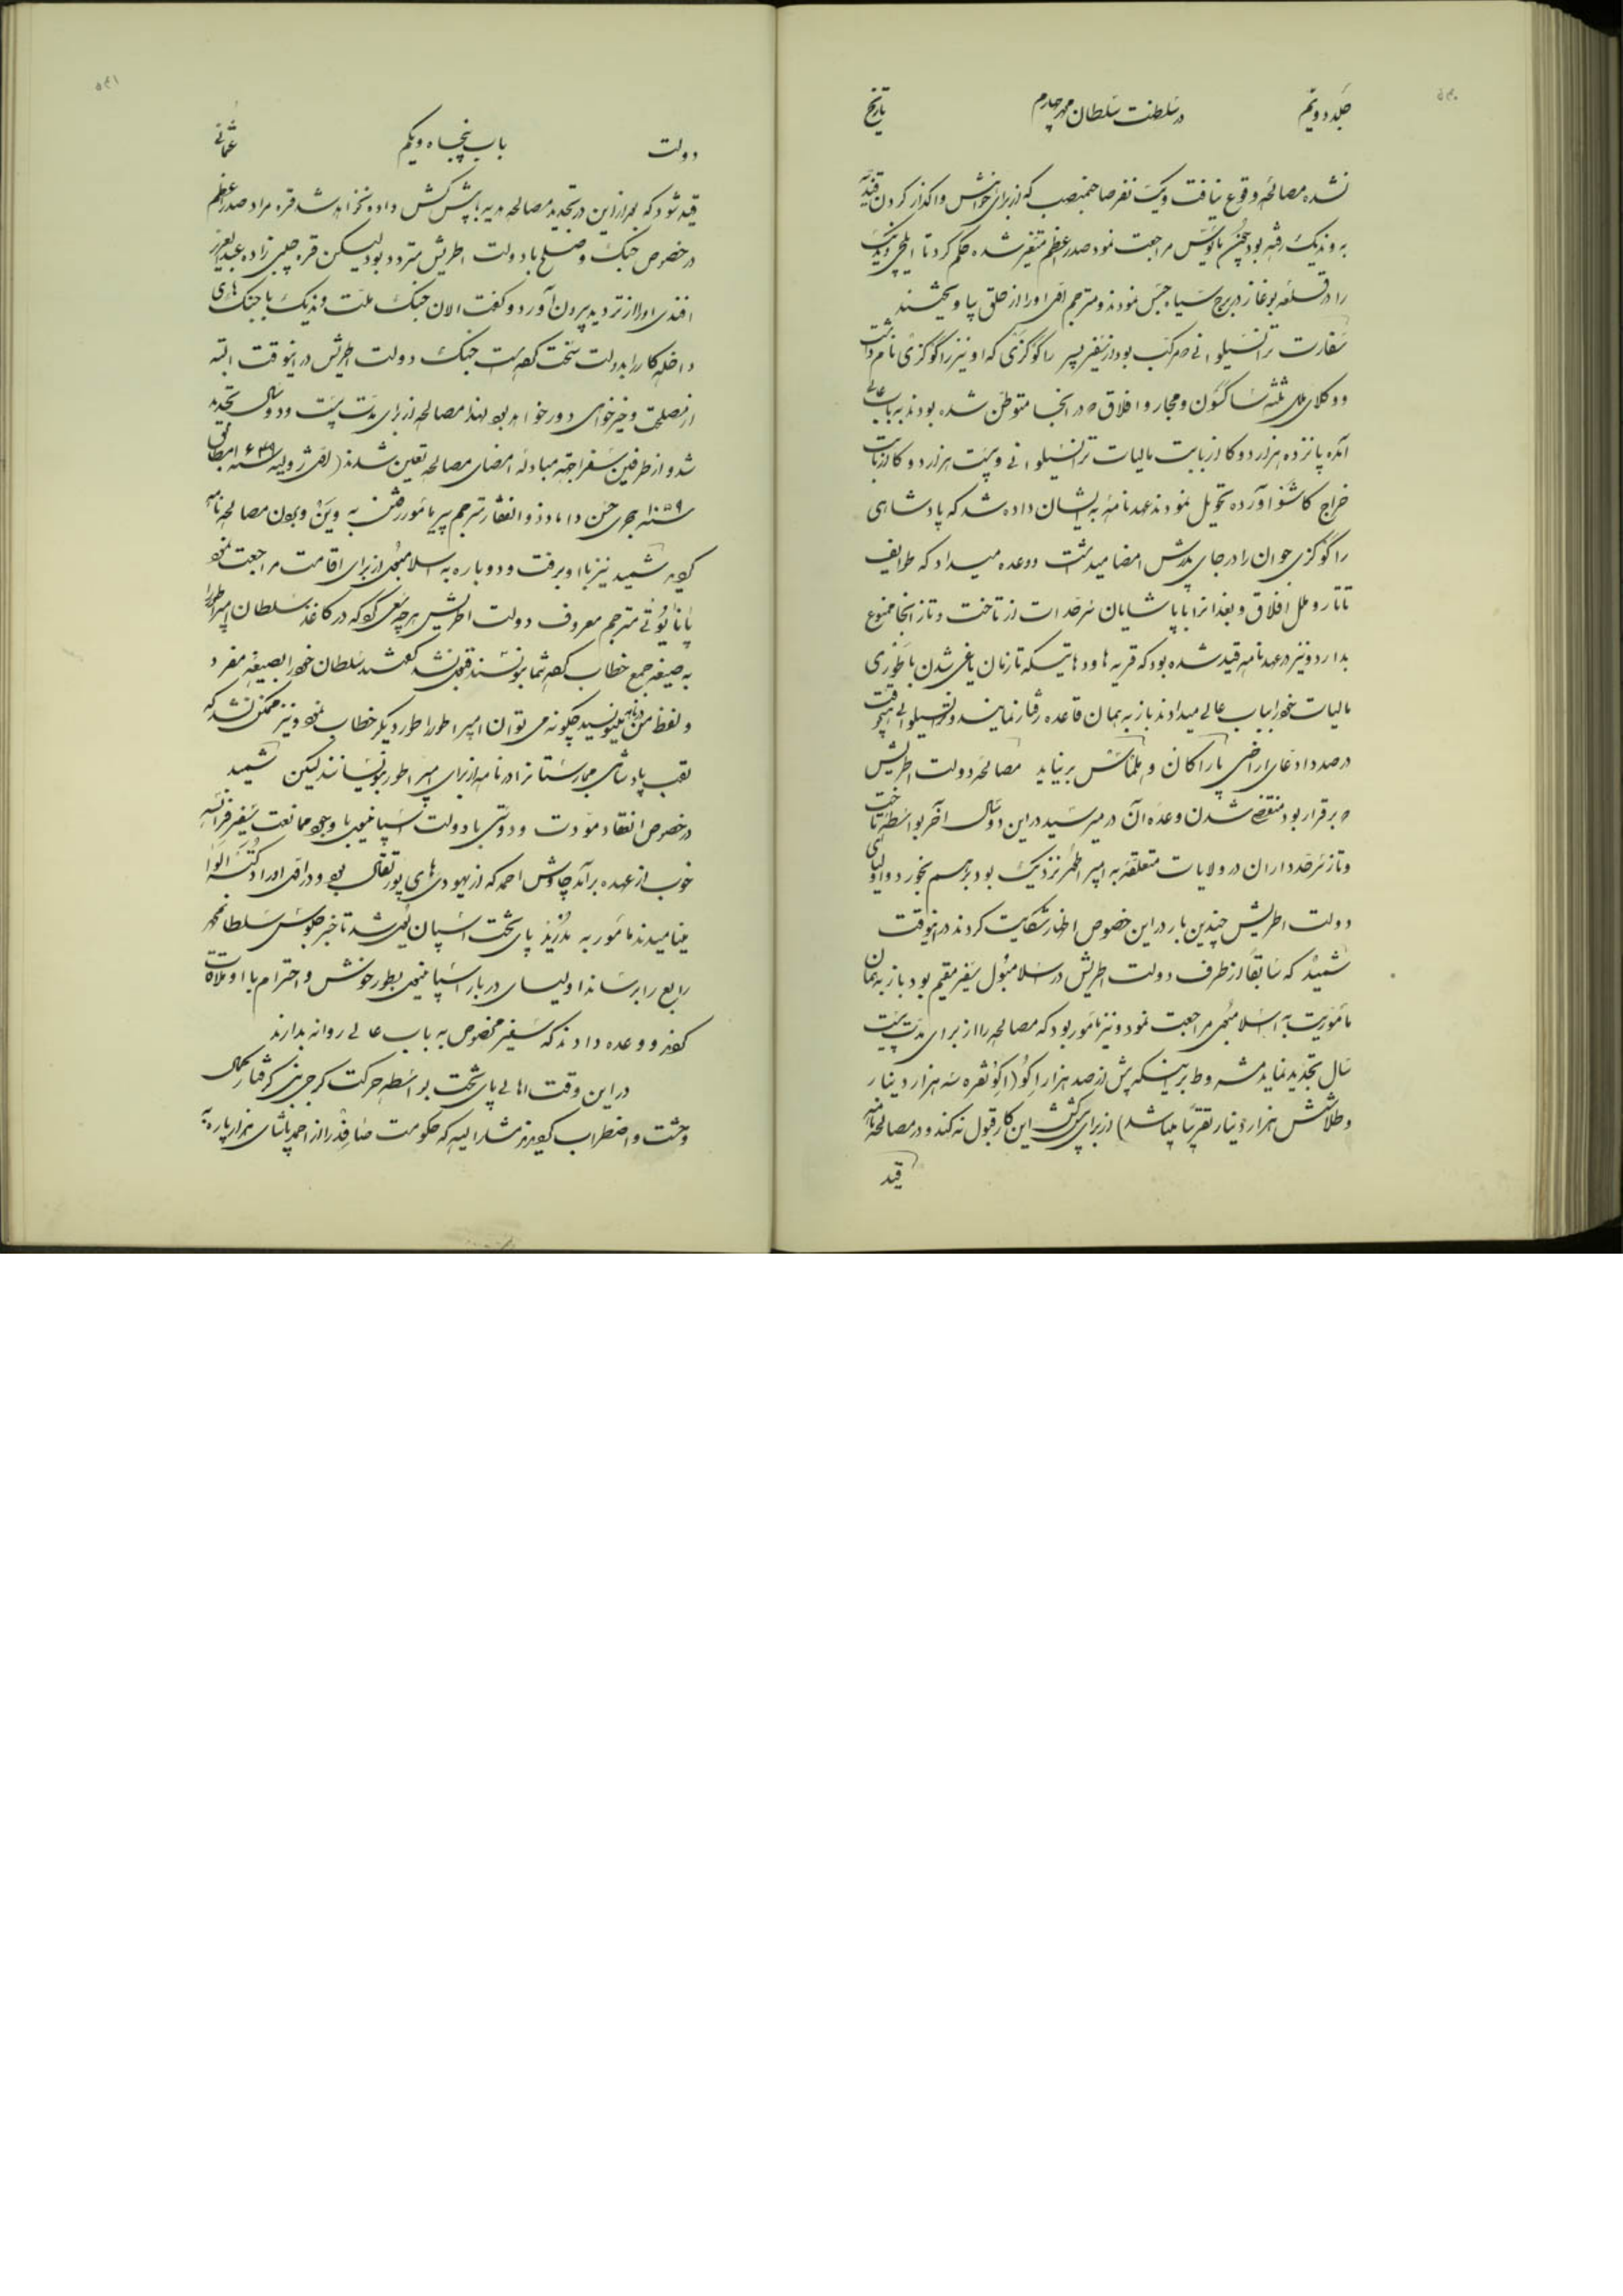 جلد دویم
در سلطنت سلطان محمد چهارم
تاریخ
نشده مصالحه وقوع نیافت و یک نفر صاحبمنصب که از برای خواهش واگذار کردن قندیه
به وندیک رفته بود چون مأیوس مراجعت نمود صدر اعظم متغیر شده حکم کرد تا ایلچی وندیک
را در قلعه بوغاز در برج سیاه حبس نمودند و مترجم اقل او را از حلق بیاویختند
سفارت ترانسیلوانی مرکب بود از سفیر پسر راگوگزی که او نیز راگوگزی نام داشت
و وکلای ملل ثلثه ساکسون و مجار و افلاق که در آنجا متوطن شده بودند به باب عالی
آمده پانزده هزار دوکا از بابت مالیات ترانسیلوانی و بیست هزار دوکا از بابت
خراج کاشئوا آورده تحویل نمودند عهدنامهٔ بایشان داده شد که پادشاهی
راگوگزی جوان را در جای پدرش امضا میداشت و وعده میداد که طوایف
تاتار و ملل افلاق و بغدانرا با پاشایان سرحدات از تاخت و تاز آنجا ممنوع
بدارد و نیز در عهدنامه قید شده بود که قریه ها و دهاتیکه تا زمان یاغی شدن باطوری
مالیات خود را بباب عالی میدادند باز به همان قاعده رفتار نمایند و ترانسیلوانی هیچوقت
در صدد ادعای اراضی باراکان و سلماش برنیاید مصالحه دولت اطریش
که برقرار بود منقضی شدن وعده آن در میرسید در این دو سال آخر بواسطه تاخت
و تاز سرحدداران در ولایات متعلقه به امپراطور نزدیک بود برهم بخورد و اولیای
دولت اطریش چندین بار در این خصوص اظهار شکایت کردند در اینوقت
شمید که سابقاً از طرف دولت اطریش در اسلامبول سفیر مقیم بود باز به همان
مأموریت به اسلامبول مراجعت نمود و نیز مأمور بود که مصالحه را از برای مدت بیست
سال تجدید نماید مشروط بر اینکه بیش از صد هزار اکو (اکو نقره سه هزار دینار
و طلا شش هزار دینار تقریباً میباشد) از برای پیشکش این کار قبول نکند و در مصالحه نامه
قید
دولت
باب پنجاه و یکم
عثمانی
قید شود که بعد از این در تجدید مصالحه هدیه یا پیشکش داده نخواهد شد قره مراد صدر اعظم
در خصوص جنگ و صلح با دولت اطریش متردد بود لیکن قره چلبی زاده عبدالعزیز
افندی او را از تردید بیرون آورد و گفت الان جنگ ملت وندیک با جنگ های
داخله کار را بدولت سخت کرده است جنگ دولت اطریش در اینوقت البته
از مصلحت و خیرخواهی دور خواهد بود لهذا مصالحه از برای مدت بیست و دو سال تجدید
شد و از طرفین سفرا جهة مبادله امضای مصالحه تعین شدند (اول ژولیه سنه ۱۶۴۹ مطابق
سنه ۱۰۵۹ هجری حسن داماد ذوالفقار ترجم پیر مأمور رفتن به وینه و بردن مصالحه نامه
گردید شمید نیز با او برفت و دوباره به اسلامبول از برای اقامت مراجعت نمود
پانایوتی مترجم معروف دولت اطریش هر چه سعی کرد که در کاغذ سلطان امپراطور را
به صیغه جمع خطاب کرده شما بنویسند قبول نشد گفتند سلطان خود را بصیغه مفرد
و لفظ من مینویسد چگونه می توان امپراطور را طور دیگر خطاب نمود و نیز ممکن نشد که
لقب پادشاهی مجارستانرا در نامه از برای امپراطور بنویسانند لیکن شمید
در خصوص انعقاد مودت و دوستی با دولت اسپانیول با وجود ممانعت سفیر فرانسه
خوب از عهده برآمد چاوش احمد که از یهودی های پورتقال بود و در اول او را دکتر الوا
مینامیدند مأمور به مدرید پای تخت اسپانیول شد تا خبر جلوس سلطان محمد
رابع را برساند اولیای دربار اسپانیول بطور خوش و احترام با او ملاقات
کردند و وعده دادند که سفیر مخصوص به باب عالی روانه بدارند
در این وقت اهالی پای تخت بواسطه حرکت گرجی نبی گرفتار کمال
وحشت و اضطراب گردیدند مشارالیه که حکومت صفد را از احمد پاشای هزارپاره به